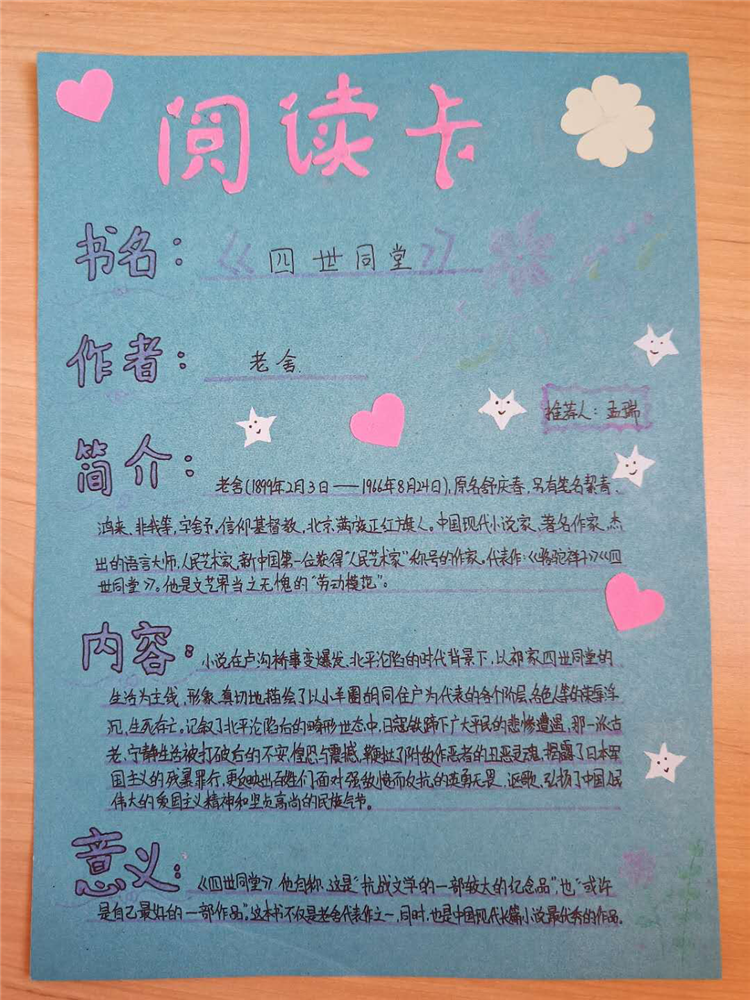 阅读卡
书名：《四世同堂》
作者：老舍
推荐人：孟瑞
简介：老舍(1899年2月3日——1966年8月24日),原名舒庆春,另有笔名絜青、
鸿来、非我等,字舍予,信仰基督教,北京满族正红旗人。中国现代小说家、著名作家,杰
出的语言大师,人民艺术家,新中国第一位获得“人民艺术家”称号的作家。代表作:《骆驼祥子》《四
世同堂》。他是文艺界当之无愧的“劳动模范”。
内容：小说在卢沟桥事变爆发、北平沦陷的时代背景下,以祁家四世同堂的
生活为主线,形象、真切地描绘了以小羊圈胡同住户为代表的各个阶层、各色人等的荣辱浮
沉、生死存亡。记叙了北平沦陷后的畸形世态中,日寇铁蹄下广大平民的悲惨遭遇,那一派古
老、宁静生活被打破后的不安、惶恐与震撼,鞭挞了附敌作恶者的丑恶灵魂,揭露了日本军
国主义的残暴罪行,更反映出百姓们面对强敌愤而反抗的英勇无畏,讴歌、弘扬了中国人民
伟大的爱国主义精神和坚贞高尚的民族气节。
意义：《四世同堂》他自称,这是“抗战文学的一部较大的纪念品”,也“或许
是自己最好的一部作品”。这本书不仅是老舍代表作之一,同时,也是中国现代长篇小说最优秀的作品.